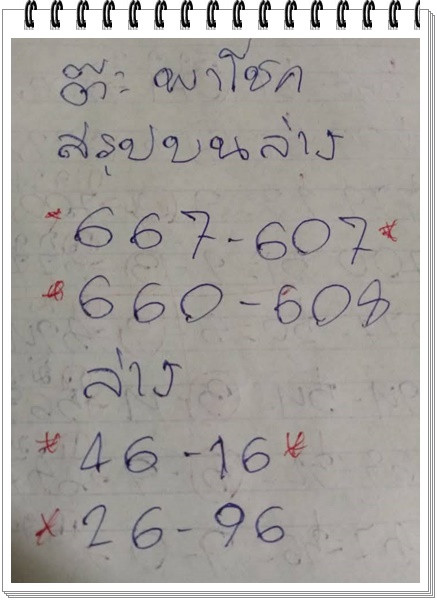 ต๊ะ พาโชค
สรุปบนล่าง
*667-607*
*660-608
ล่าง
*46-16*
*26-96